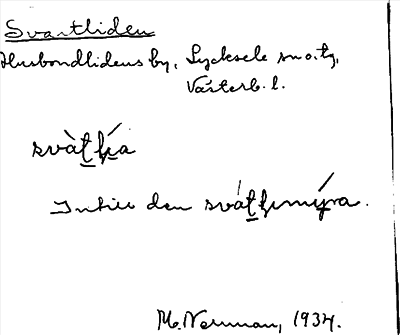 Svartliden
Husbondlidens by, Lycksele sn o. tg,
Västerb. l.
svàt̲k̲a
Intill den svátkmýra.
M. Nerman, 1934.